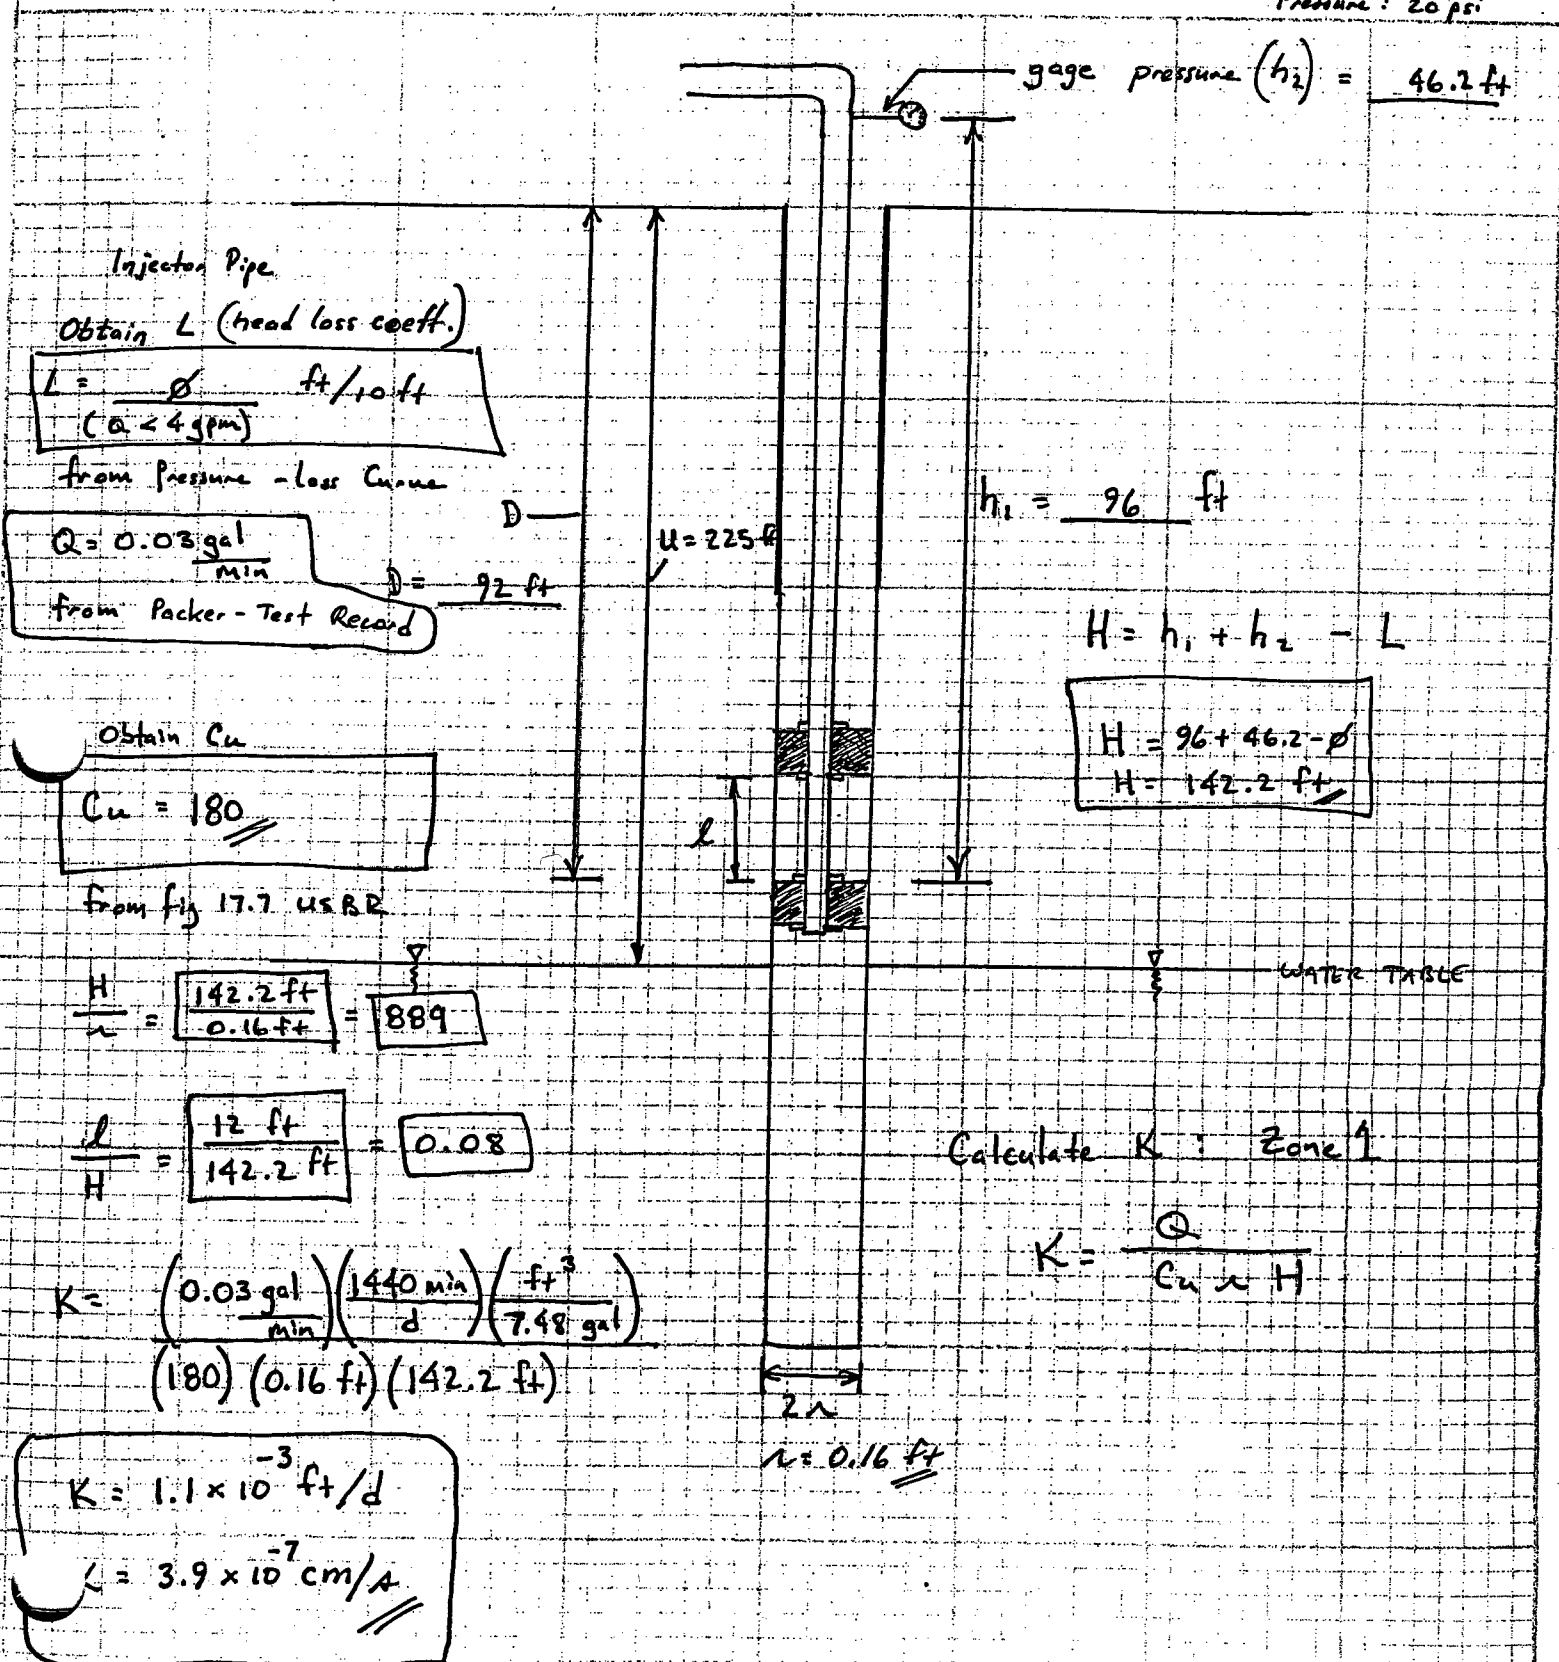 Pressure : 20 psi
gage pressure (h₂) = 46.2 ft
Injector Pipe
Obtain L (head loss coeff.)
L = ∅ ft/10 ft
(Q < 4 gpm)
from Pressure - Loss Curve
Q = 0.03 gal/min
from Packer - Test Record
D
D = 92 ft
U = 225 ft
h₁ = 96 ft
H = h₁ + h₂ - L
H = 96 + 46.2 - ∅
H = 142.2 ft
Obtain Cu
Cu = 180
from fig 17.7 USBR
l
WATER TABLE
H/r = 142.2 ft/0.16 ft = 889
l/H = 12 ft/142.2 ft = 0.08
Calculate K : Zone 1
K = Q/Cu r H
K = (0.03 gal/min)(1440 min/d)(ft³/7.48 gal)
(180)(0.16 ft)(142.2 ft)
2r
r = 0.16 ft
K = 1.1 × 10⁻³ ft/d
K = 3.9 × 10⁻⁷ cm/s